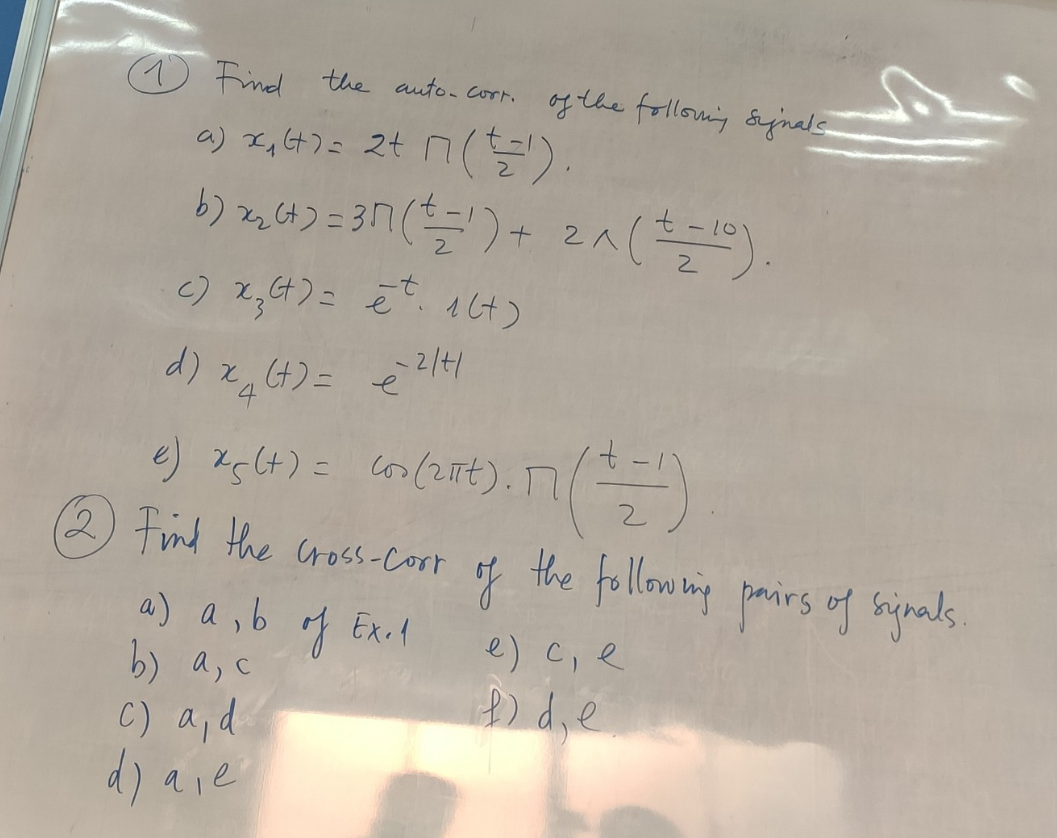 ① Find the auto-corr. of the following signals
a) x₁(t) = 2t Π((t-1)/2).
b) x₂(t) = 3Π((t-1)/2) + 2Λ((t-10)/2).
c) x₃(t) = e^-t. 1(t)
d) x₄(t) = e^-2|t|
e) x₅(t) = cos(2πt). Π((t-1)/2).
② Find the cross-corr of the following pairs of signals.
a) a, b of Ex.1
b) a, c
c) a, d
d) a, e
e) c, e
f) d, e.